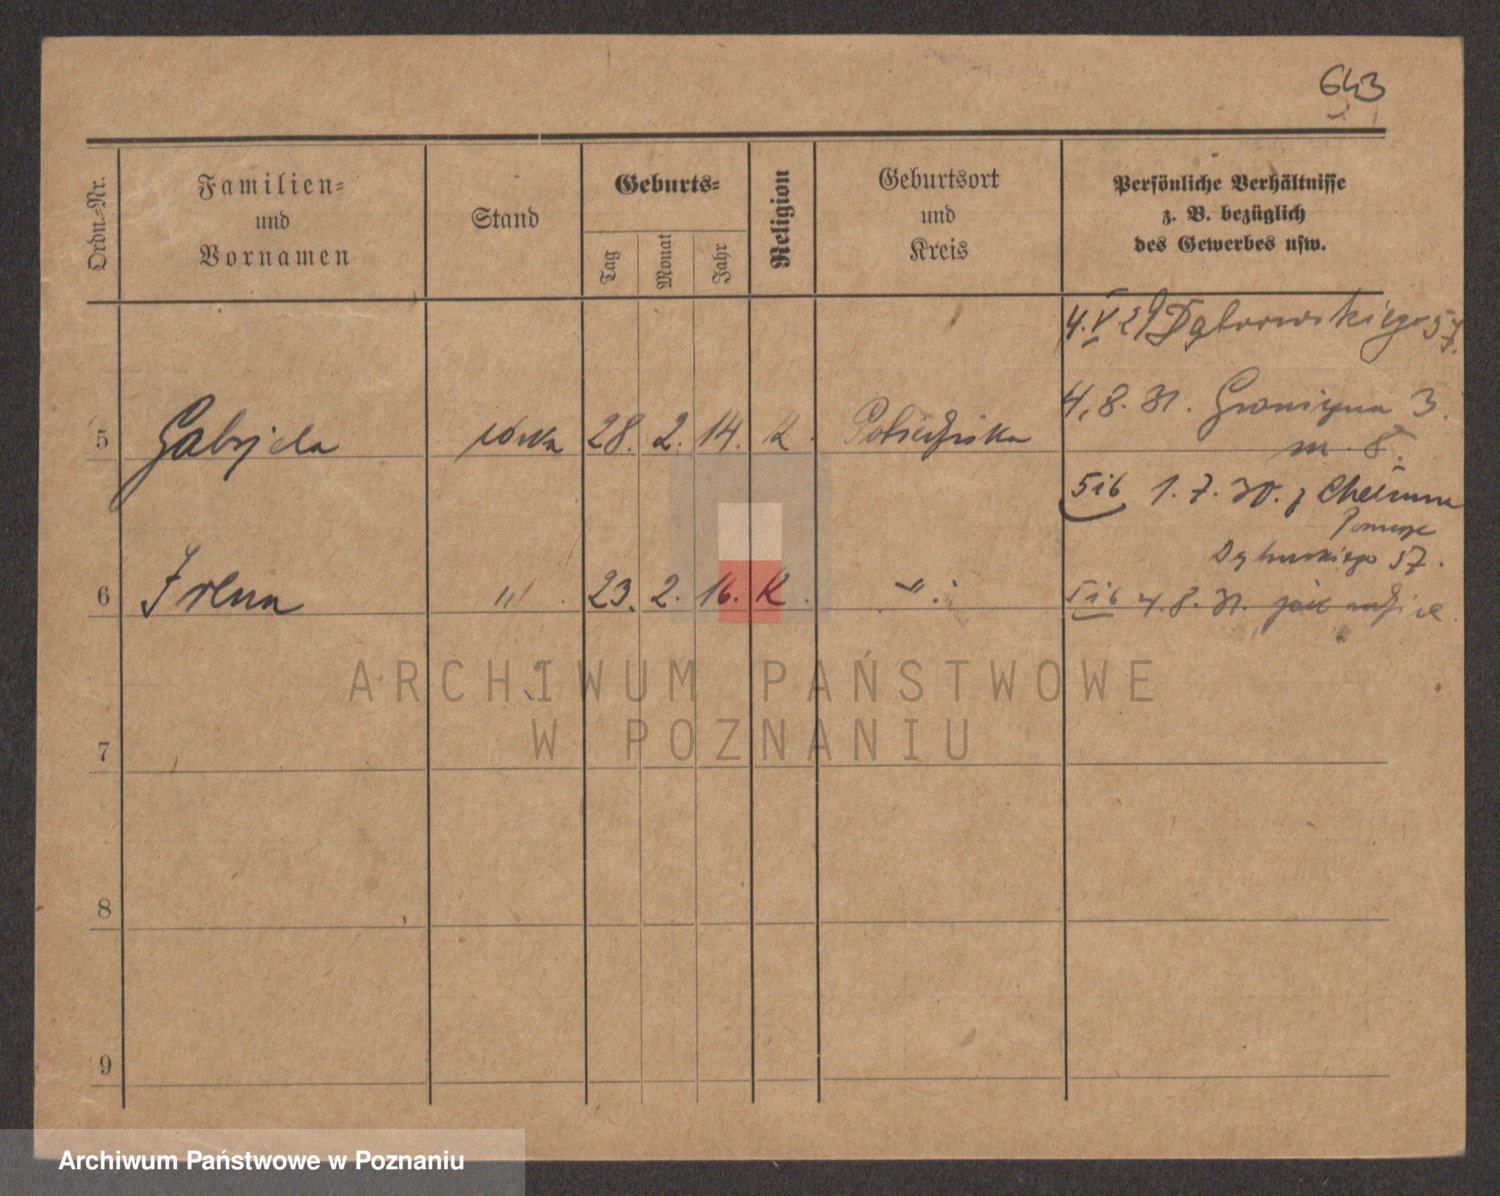 643
Ordn.-Nr.
Familien-
und
Vornamen
Stand
Geburts-
Tag
Monat
Jahr
Religion
Geburtsort
und
Kreis
Persönliche Verhältnisse
z. B. bezüglich
des Gewerbes usw.
4. V 29 Dąbrowskiego 57.
4. 8. 31. 3.
m. 8.
5 Gabrjela córka 28. 2. 14. K.
5 i 6 1. 7. 30. z Chełmna
Pomorze
Dąbrowskiego 57.
6 Irena " 23. 2. 16. K. "
5 i 6 4. 8. 31. jak
7
8
9
ARCHIWUM PAŃSTWOWE
W POZNANIU
Archiwum Państwowe w Poznaniu